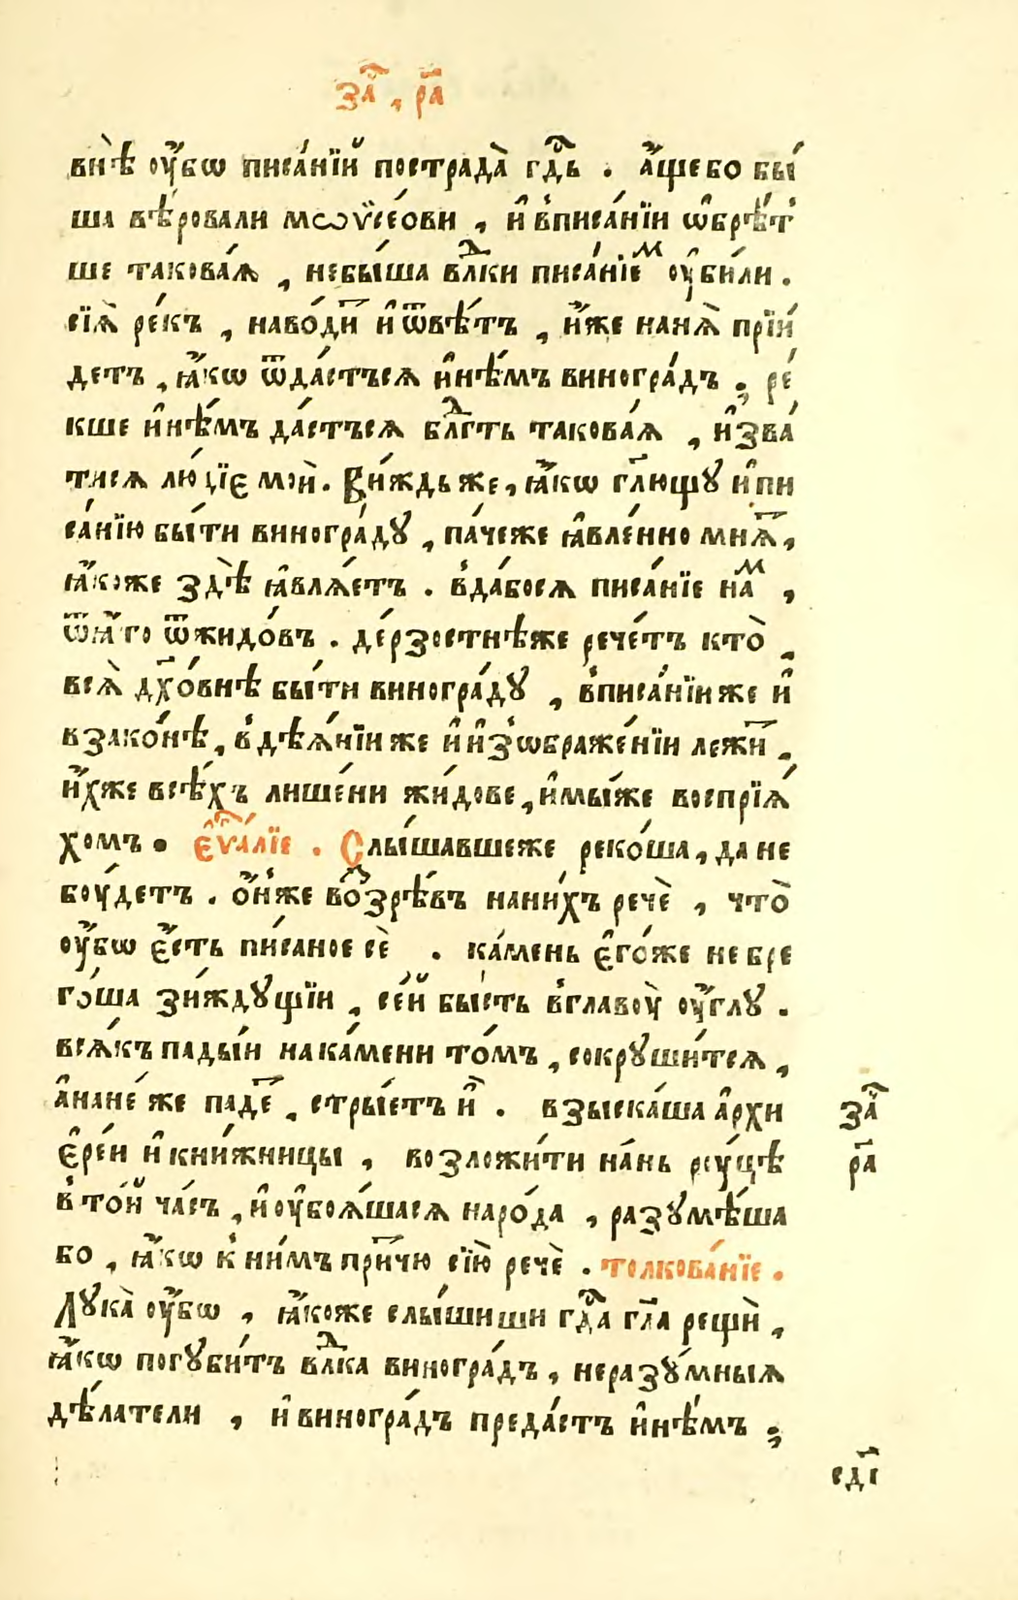 за҃ , р҃а
вн́ѣ ᲂу҆́бѡ писа́нїй пострада̀ гд҇ь . а҆́щебо бы́
ша вѣ́ровали мѡѷсе́ови , и҆ в̾писа́нїи ѡ҆брѣ́т̾
ше такова́ѧ , небы́ша влⷣки писа́нїеⷨ ᲂу҆би́ли .
сїѧ̀ ре́къ , наво́ди҇ и҆ ѿвѣ́тъ , и҆́же нанѧ̀ прїи́
детъ , ꙗ҆́кѡ ѿда́стъсѧ и҆нѣ́мъ виногра́дъ ; ре́
кше и҆нѣ́мъ да́стъсѧ блⷣгть такова́ѧ , и҆зва́
тисѧ лю́дїе мои̑ . Ви́ждьже , ꙗ҆́кѡ гл҃ющꙋ и҆пи
са́нїю бы́ти виногра́дꙋ , па́чеже ꙗ҆вле́нно мнѧ҇ ,
ꙗ҆́коже здѣ̀ ꙗ҆влѧ́етъ . в̾да́босѧ писа́нїе наⷨ ,
ѿꙗ҆́го ѿжидо́въ . де́рзостнѣже рече́тъ кто̀ ,
всѧ̀ дх҃о́внѣ бы́ти виногра́дꙋ , в̾писа́нїиже и҆
взако́нѣ , в̾дѣѧ́нїиже и҆ и҆з̾ѡбраже́нїи лежи҇ ,
и҆́хже всѣ́хъ лише́ни жи́дове , и҆мы́же воспрїѧ́
хомъ . є҆ѵⷢ҇алїе . Слы́шавшеже реко́ша , да не
бᲂу́детъ . ѻ҆́н̾же воззрѣ́въ нани́хъ речѐ , что̀
ᲂу҆́бѡ є҆́сть пи́саное сѐ . ка́мень є҆го́же небре
го́ша зи́ждꙋщїи , се́й бы́сть в̾главᲂу̀ ᲂу҆́глꙋ .
всѧ́къ падыи́ нака́мени то́мъ , сокрꙋши́тсѧ ,
а҆нане́ же паде҇ , стры́етъ и҆̀ . взыска́ша а҆рхи
є҆ре́и и҆ кни́жницы , возложи́ти на́нь рᲂу́цѣ
в̾ то́й ча́съ , и҆ ᲂу҆боѧ́шасѧ наро́да , разꙋмѣ́ша
бо , ꙗ҆́кѡ к̾ ни́мъ при҇чю сїю̀ речѐ . толкова́нїе .
Лꙋка̀ ᲂу҆́бѡ , ꙗ҆́коже слы́шиши гдⷭ҇а гл҃а рещѝ ,
ꙗ҆́кѡ погꙋби́тъ влⷣка виногра́дъ , неразꙋ́мныѧ
дѣ́латели , и҆ виногра́дъ преда́стъ и҆нѣ́мъ ;
за҃
р҃а
сді҃